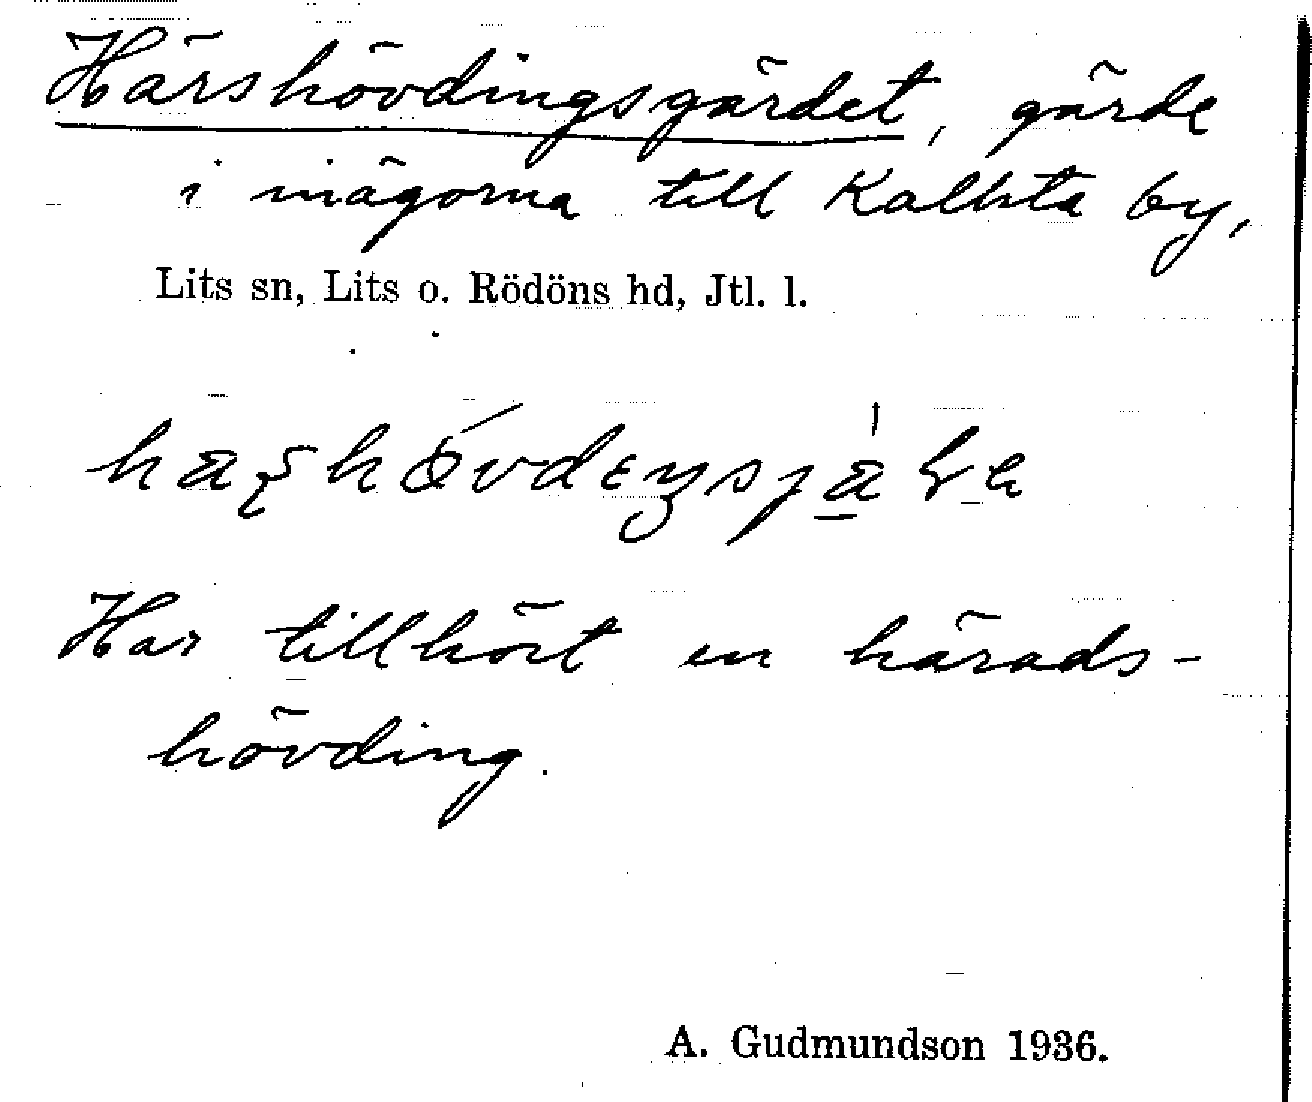 Härshövdingsgärdet, gärde
i inägorna till Kallsta by,
Lits sn, Lits o. Rödöns hd, Jtl. l.
Har tillhört en härads-
hövding.
A. Gudmundson 1936.